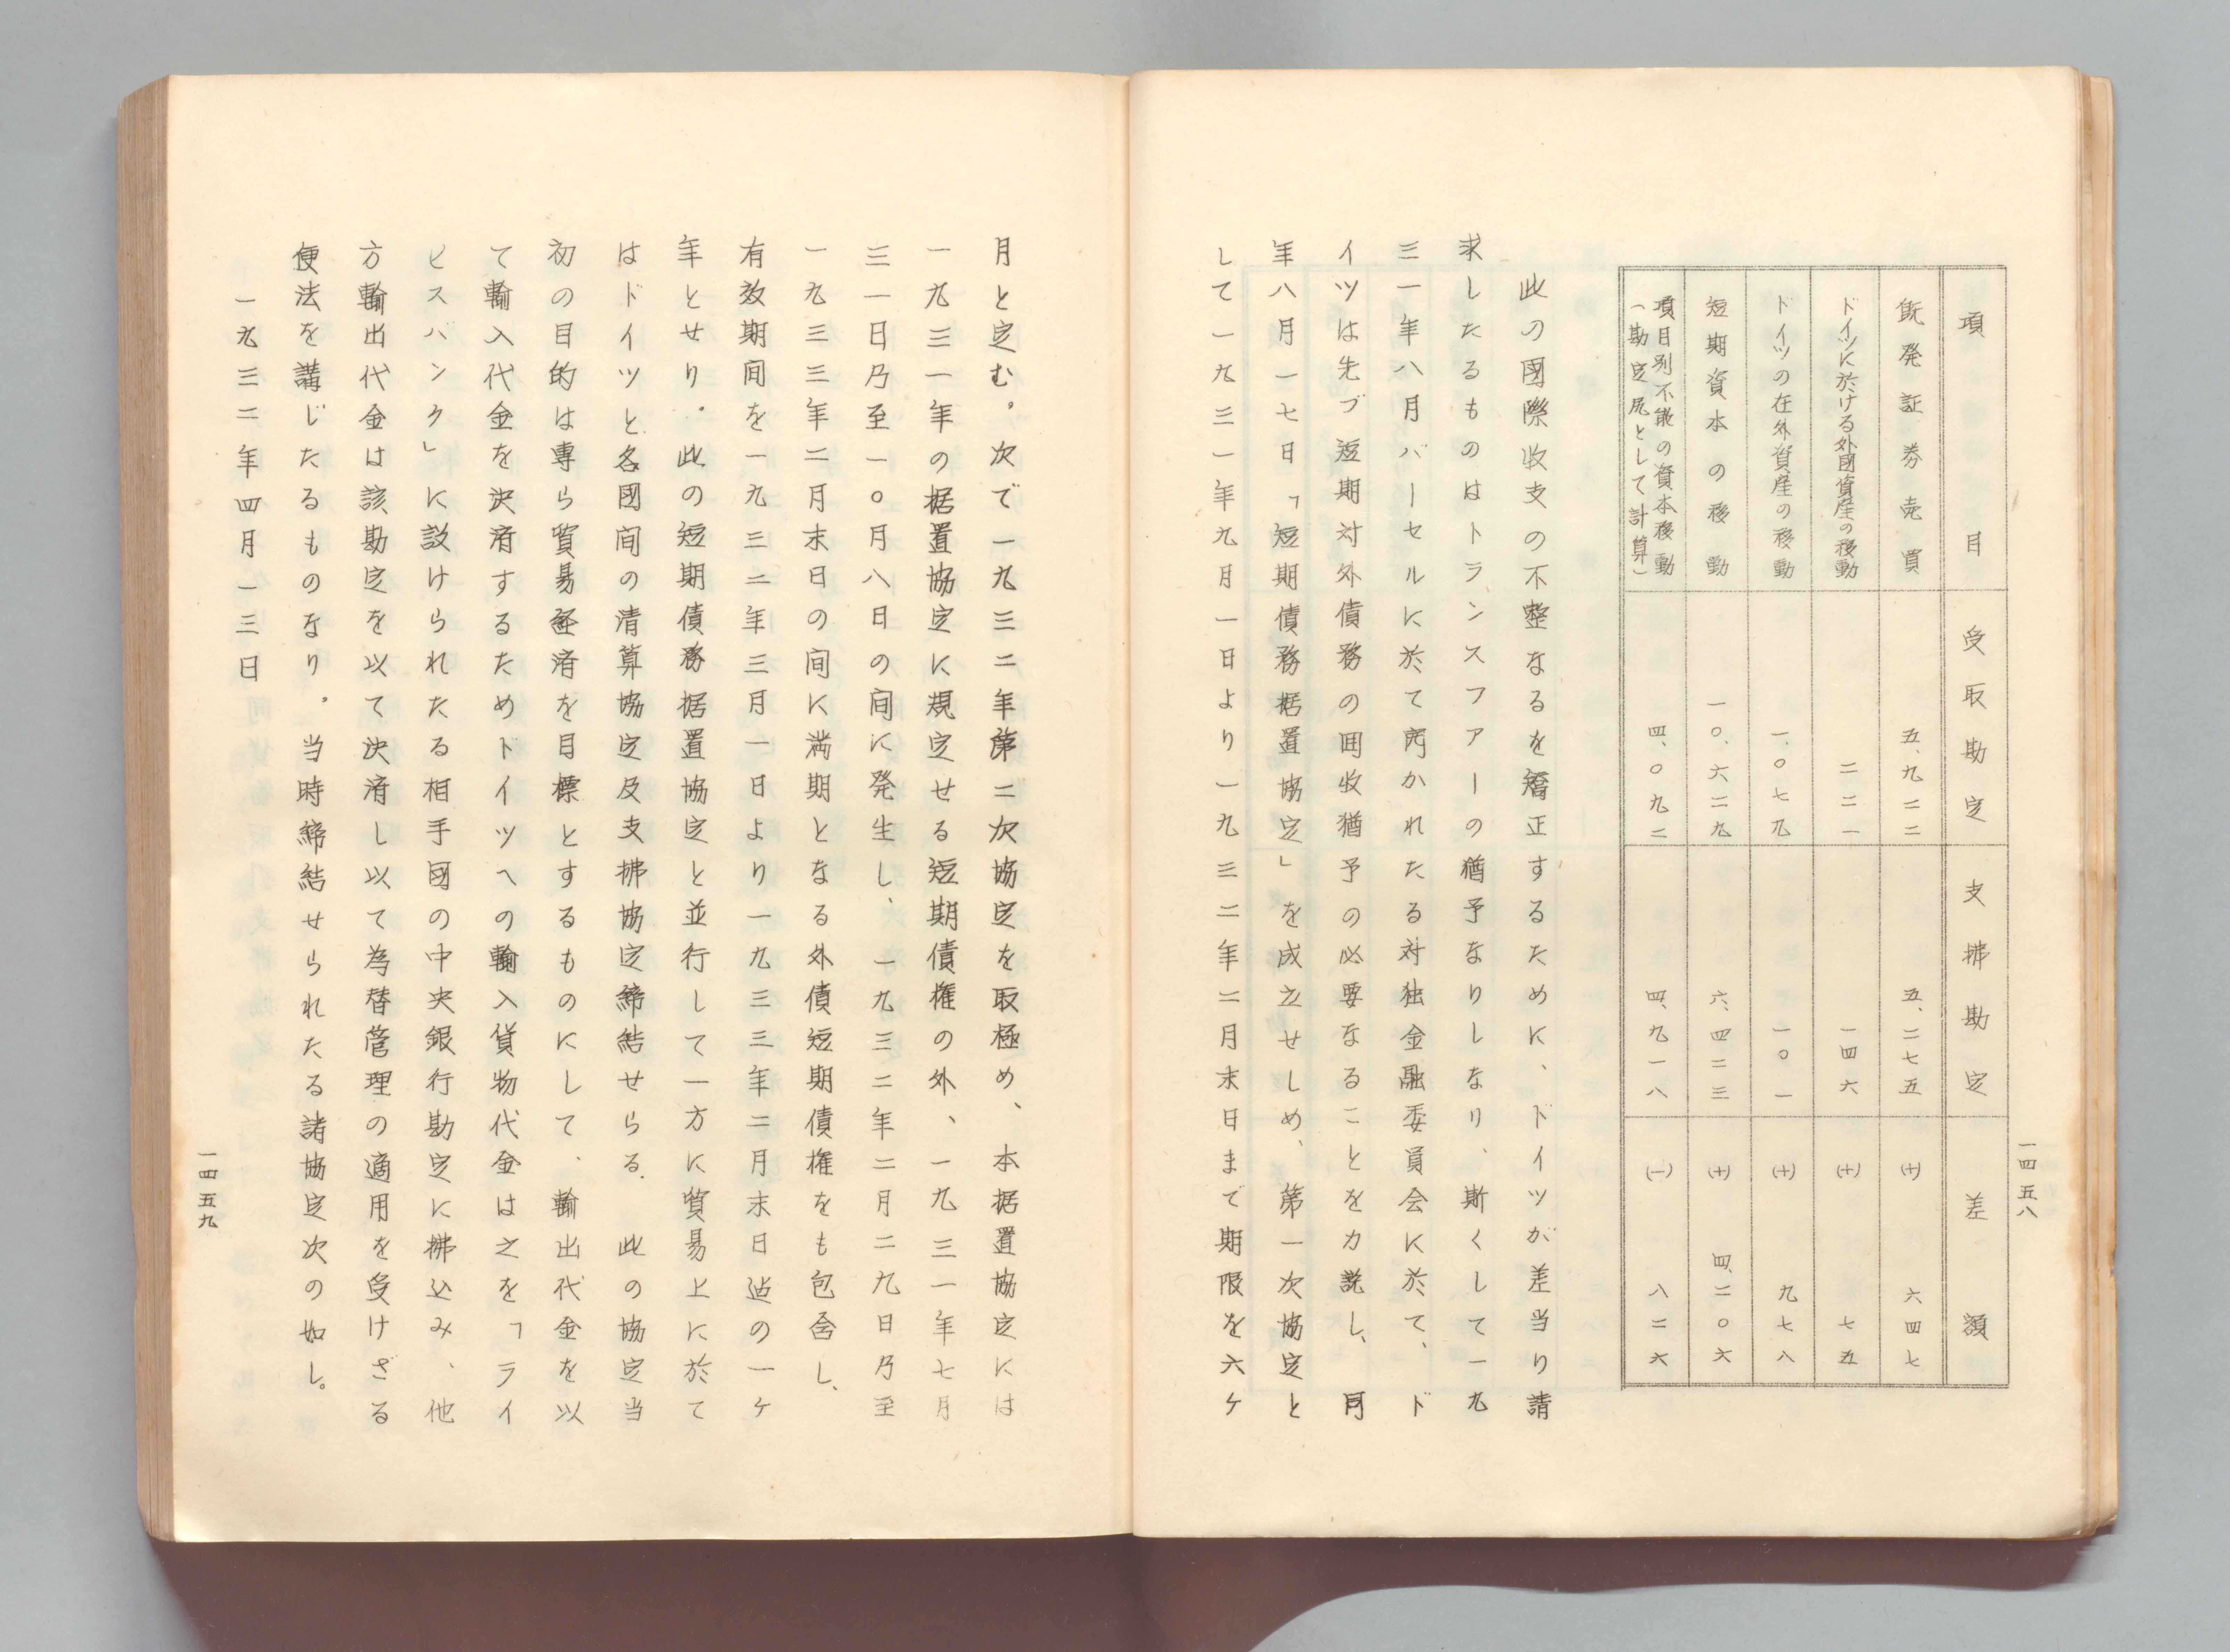 一四五八
項目 受取勘定 支拂勘定 差額
既発証券売買 五、九二二 五、二七五 (+) 六四七
ドイツに於ける外國資産の移動 二二一 一四六 (+) 七五
ドイツの在外資産の移動 一、〇七九 一〇一 (+) 九七八
短期資本の移動 一〇、六二九 六、四二三 (+) 四、二〇六
項目別不能の資本移動
(勘定尻として計算) 四、〇九二 四、九一八 (一) 八二六
此の國際收支の不整なるを矯正するために、ドイツが差当り請
求したるものはトランスファーの猶予なりしなり、斯くして一九
三一年八月バーセルに於て開かれたる対独金融委員会に於て、ド
イツは先づ短期対外債務の回收猶予の必要なることを力説し、同
年八月一七日「短期債務据置協定」を成立せしめ、第一次協定と
して一九三一年九月一日より一九三二年二月末日まで期限を六ケ
月と定む。次で一九三二年第二次協定を取極め、本据置協定には
一九三一年の据置協定に規定せる短期債権の外、一九三一年七月
三一日乃至一〇月八日の間に発生し、一九三二年二月二九日乃至
一九三三年二月末日の間に満期となる外債短期債権をも包含し、
有效期间を一九三二年三月一日より一九三三年二月末日迠の一ケ
年とせり。此の短期債務据置協定と並行して一方に貿易上に於て
はドイツと各國间の清算協定及支拂協定締結せらる. 此の協定当
初の目的は専ら貿易経済を目標とするものにして、輸出代金を以
て輸入代金を決済するためドイツへの輸入貨物代金は之を「ライ
ヒスバンク」に設けられたる相手國の中央銀行勘定に拂込み、他
方輸出代金は該勘定を以て決済し以て為替管理の適用を受けざる
便法を講じたるものなり。当時締結せられたる諸協定次の如し。
一九三二年四月一三日
一四五九